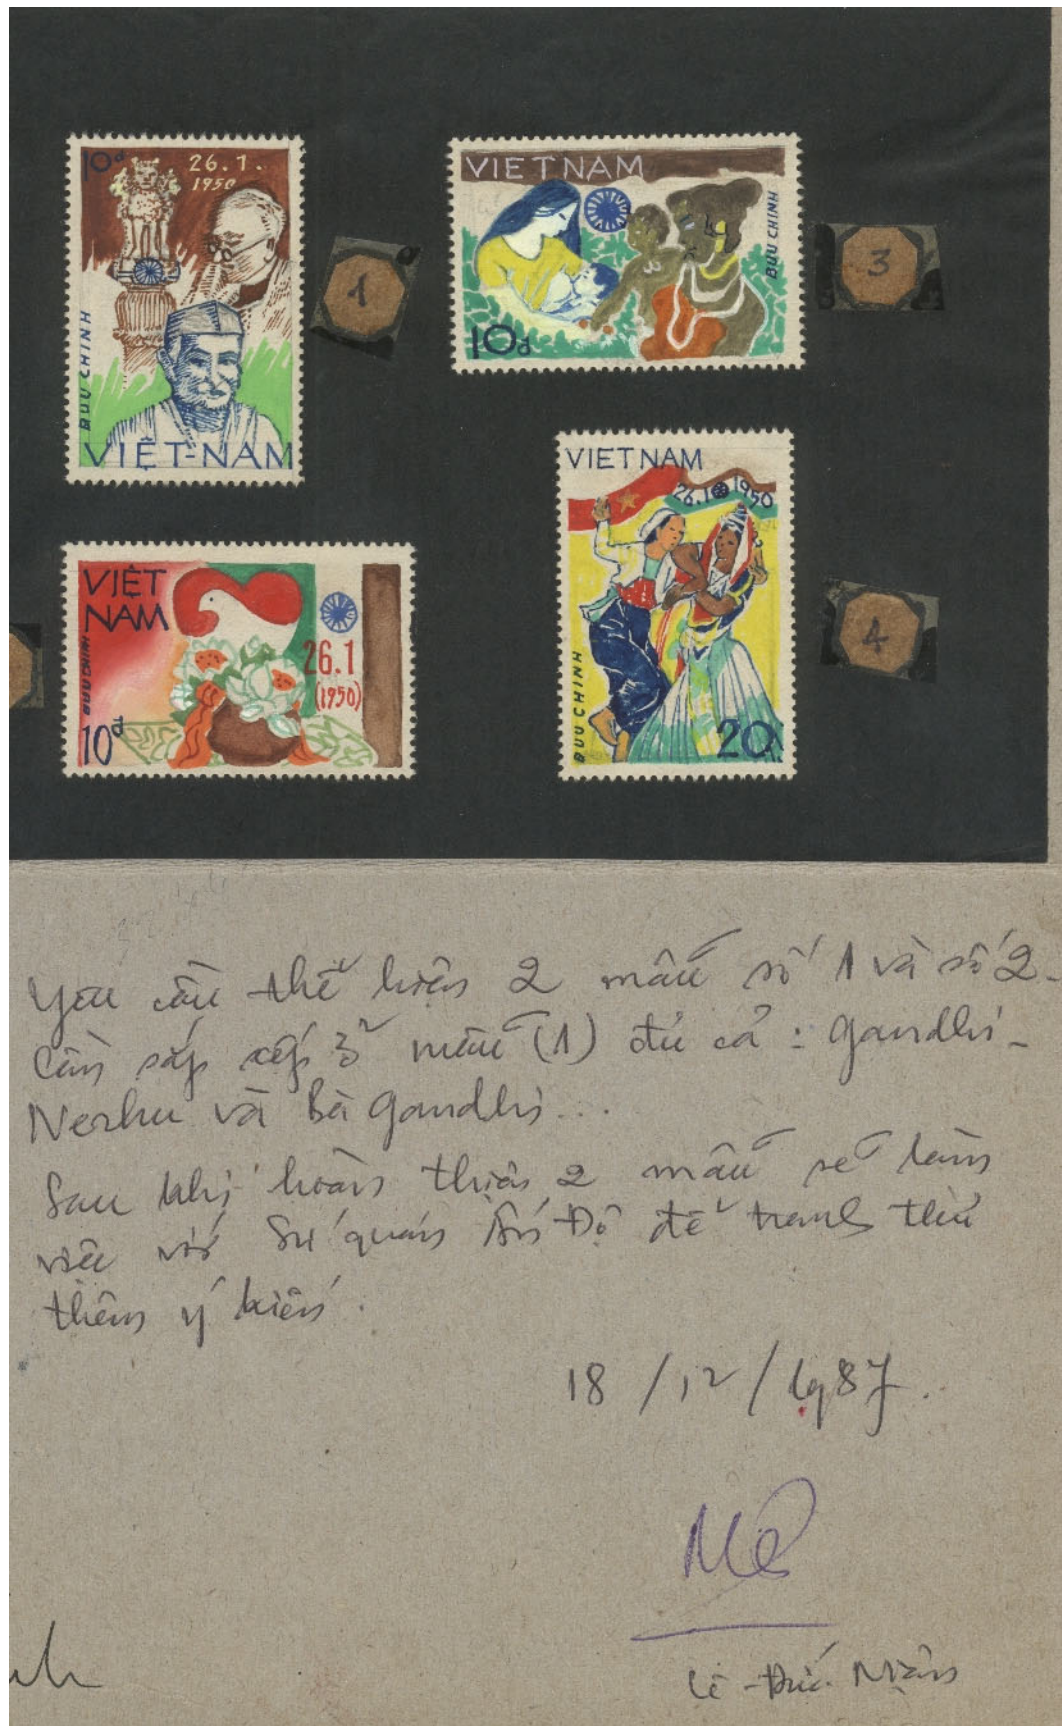 10đ
26.1.
1950
BƯU CHINH
VIỆT-NAM
1
VIETNAM
BUU CHINH
10đ
3
VIỆT
NAM
BUU CHINH
26.1
(1950)
10đ
VIETNAM
26.1 1950
BUU CHINH
20
4
Yêu cầu thể hiện 2 mẫu số 1 và số 2.
Cần sắp xếp ở mẫu (1) đủ cả : Gandhi -
Nerhu và Bà Gandhi...
Sau khi hoàn thiện 2 mẫu sẽ làm
việc với Sứ quán Ấn Độ để tranh thủ
thêm ý kiến.
18/12/1987.
Lê-Đức